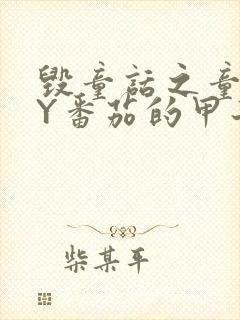 毁童话之童
Y番茄的甲
柴某平